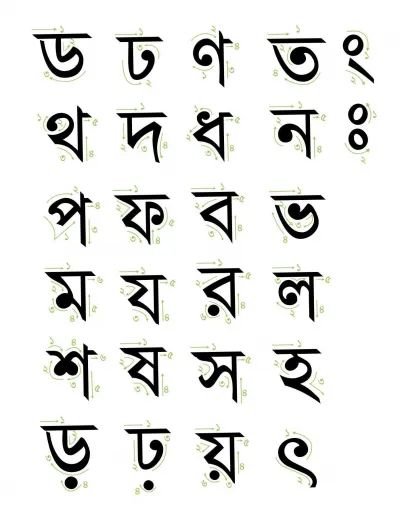 ড ঢ ণ ত ং
থ দ ধ ন ঃ
প ফ ব ভ
ম য র ল
শ ষ স হ
ড় ঢ় য় ৎ